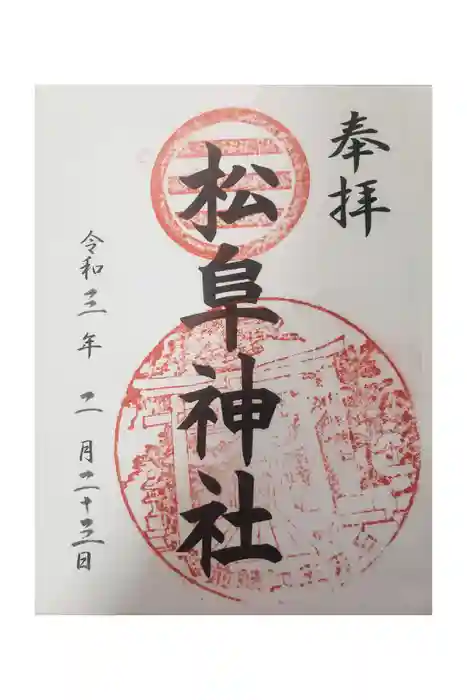 奉拝
松阜神社
令和三年 二月二十三日